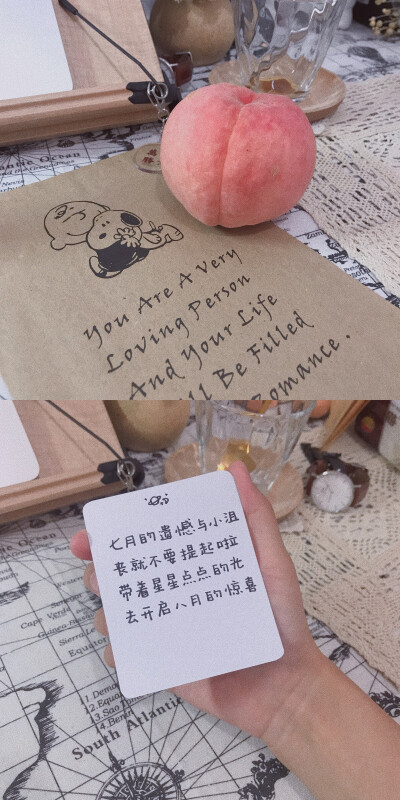 You Are A Very
Loving Person
And Your Life
Be Filled
Romance.
七月的遗憾与小沮
丧就不要提起啦
带着星星点点的光
去开启八月的惊喜
Cape Verde
Sierra Leone
South Atlantic